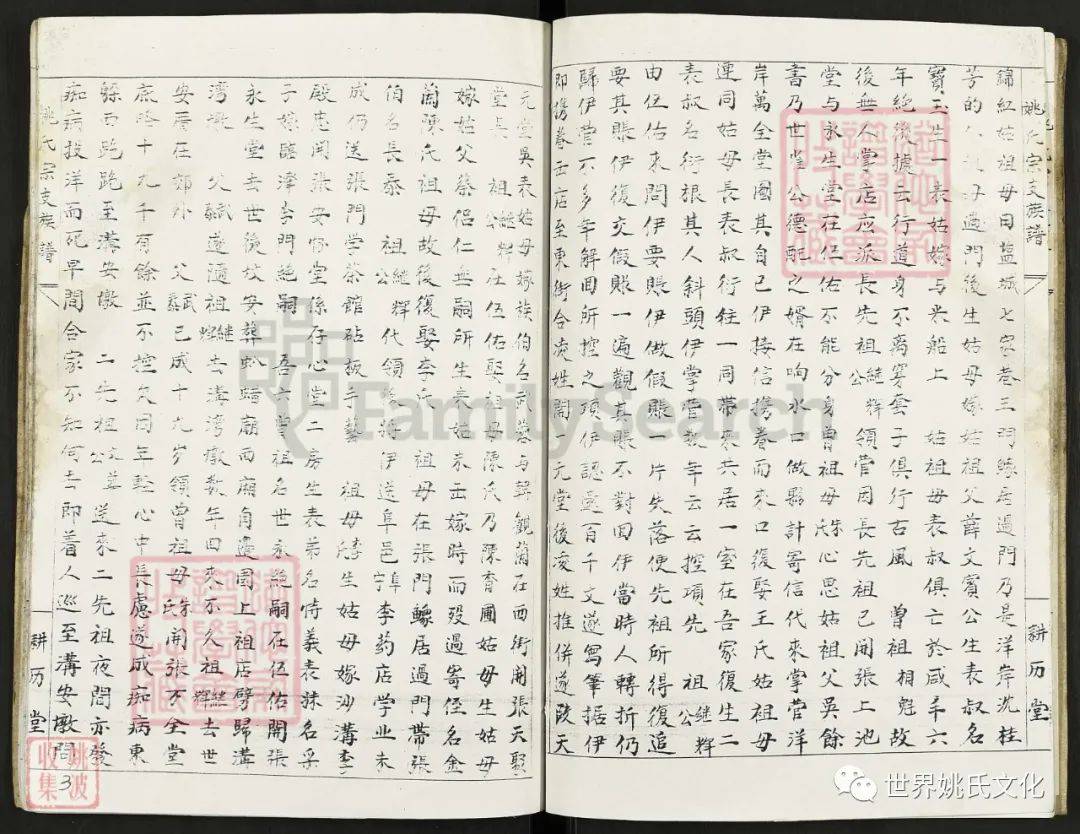 姚氏宗支族譜
耕历堂
錦紅姑祖母曰塩城七家巷三門緣在過門乃是洋岸沈桂
芳的 母過門後生姑母嫁姑祖父薛文賓公生表叔名
寳玉生一表姑嫁与米船上 姑祖母表叔俱亡於咸丰六
年絶後據云行道身不离穿套子俱行古風 曾祖相魁故
後無人掌店应派長先祖公繼輝領管因長先祖已開張上池
堂与永生堂在伍佑不能分身曾祖母朱氏心思姑祖父吳餘
書乃世雀公德配之婿在响水口做夥計寄信代來掌管洋
岸萬全堂國其自己伊接信携眷而來口復娶王氏姑祖母
連同姑母長表叔衍往一同帶來共居一室在吾家復生二
表叔名衍根其人斜頭伊掌管数年云云控項先 祖公繼輝
由伍佑來問伊要賬伊做假賬一片失落便先祖所得復追
要其賬伊復交假賬一遍觀其賬不對回伊當時人轉折仍
歸伊管不多年解囬所控之項伊認還百千文遂寫筆据伊
即携眷去店至東街合凌姓開一元堂後凌姓推併遂改天
元堂吳表姑母嫁族伯名武卷与聲觀蘭在西街開張天聚
堂長 祖公繼輝在伍佑娶祖母陳氏乃陳育圃姑母生姑母
嫁姑父蔡侣仁無嗣所生表姑未去嫁時而殁過寄侄名金
蘭陳氏祖母故後復娶李氏 祖母在張門孀居過門帶張
伯名長泰 祖公繼輝代領後將伊送阜邑阜宁李药店学业未
成仍送張門学茶館砧板手藝 祖母李氏生姑母嫁沙溝李
殿忠開張安怀堂係存心堂二房生表弟名恃義表抹名孚
子嫁臨澤李門絶嗣 吾六曾祖名世永絶嗣在伍佑開張
永生堂去世後坟安葬虾蟮廟西廂角邊園上祖店劈歸溝
湾墩 父斌彝遂随祖繼輝去溝湾墩数年回來不久祖繼輝去世
安厝在郊外 父斌彝已成十九岁領曾祖母朱氏開張万全堂
底賂十九千有餘並不控欠同年輊心中長慮遂成痴病東
躲西跑跑至溝安墩 二先祖公文並送來二先祖夜間亦發
痴病投洋而死早間合家不知何去即着人巡至溝安墩問
姚氏宗支族譜
耕历堂
3
姚波收集
FamilySearch
世界姚氏文化